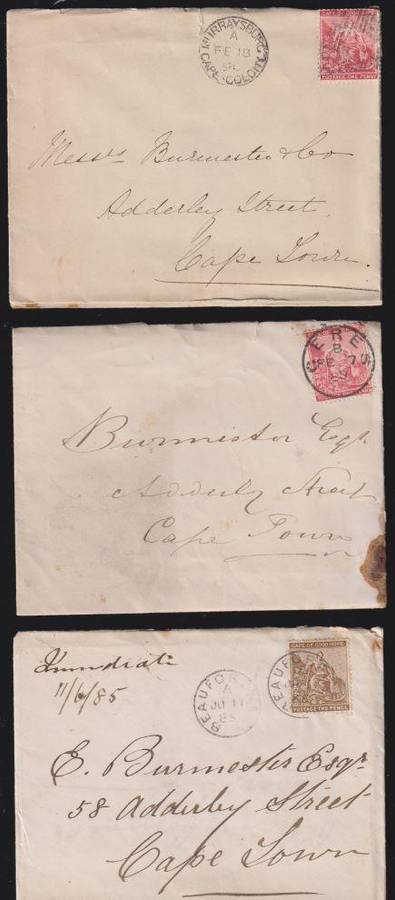 MURRAYSBURG
A
FE 18
CAPE COLONY
CAPE OF GOOD HOPE
POSTAGE ONE PENNY
Messrs Burmester & Co
Adderley Street
Cape Town.
CERES
B
7
Burmester Esqr
Adderly Street
Cape Town
Immediate
11/6/85
BEAUFOR
A
JU 11
85
BEAUFOR
CAPE OF GOOD HOPE
POSTAGE TWO PENCE
E. Burmester Esqr
58 Adderley Street
Cape Town